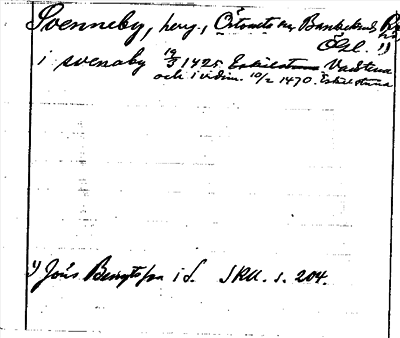 Svenneby, herg., Örtomta sn, Bankekinds
Ögl. 1)
i svenaby 19/3 1425 Eskilstuna Vadstena
och i vidim. 10/2 1470. Eskilstuna
1) Jöns Bengtsson i d. SRU. s. 204.